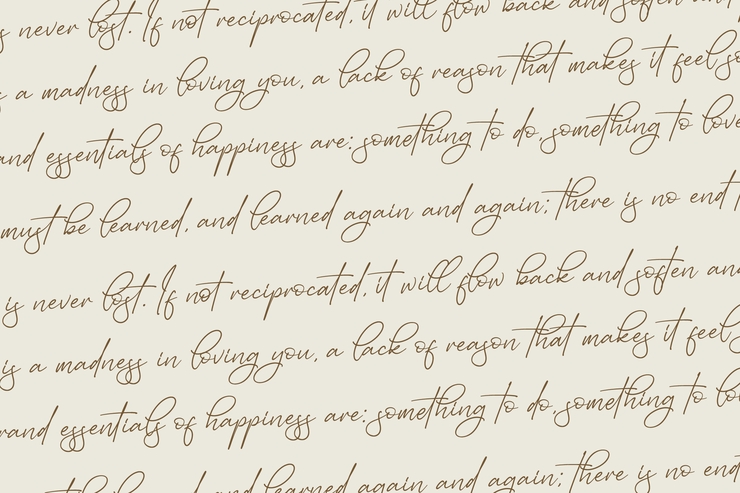 s never lost. If not reciprocated, it will flow back and soften and
is a madness in loving you, a lack of reason that makes it feel so
and essentials of happiness are: something to do, something to love
must be learned, and learned again and again; there is no end t
is never lost. If not reciprocated, it will flow back and soften and
is a madness in loving you, a lack of reason that makes it feel
rand essentials of happiness are: something to do, something to lo
and learned again and again; there is no end